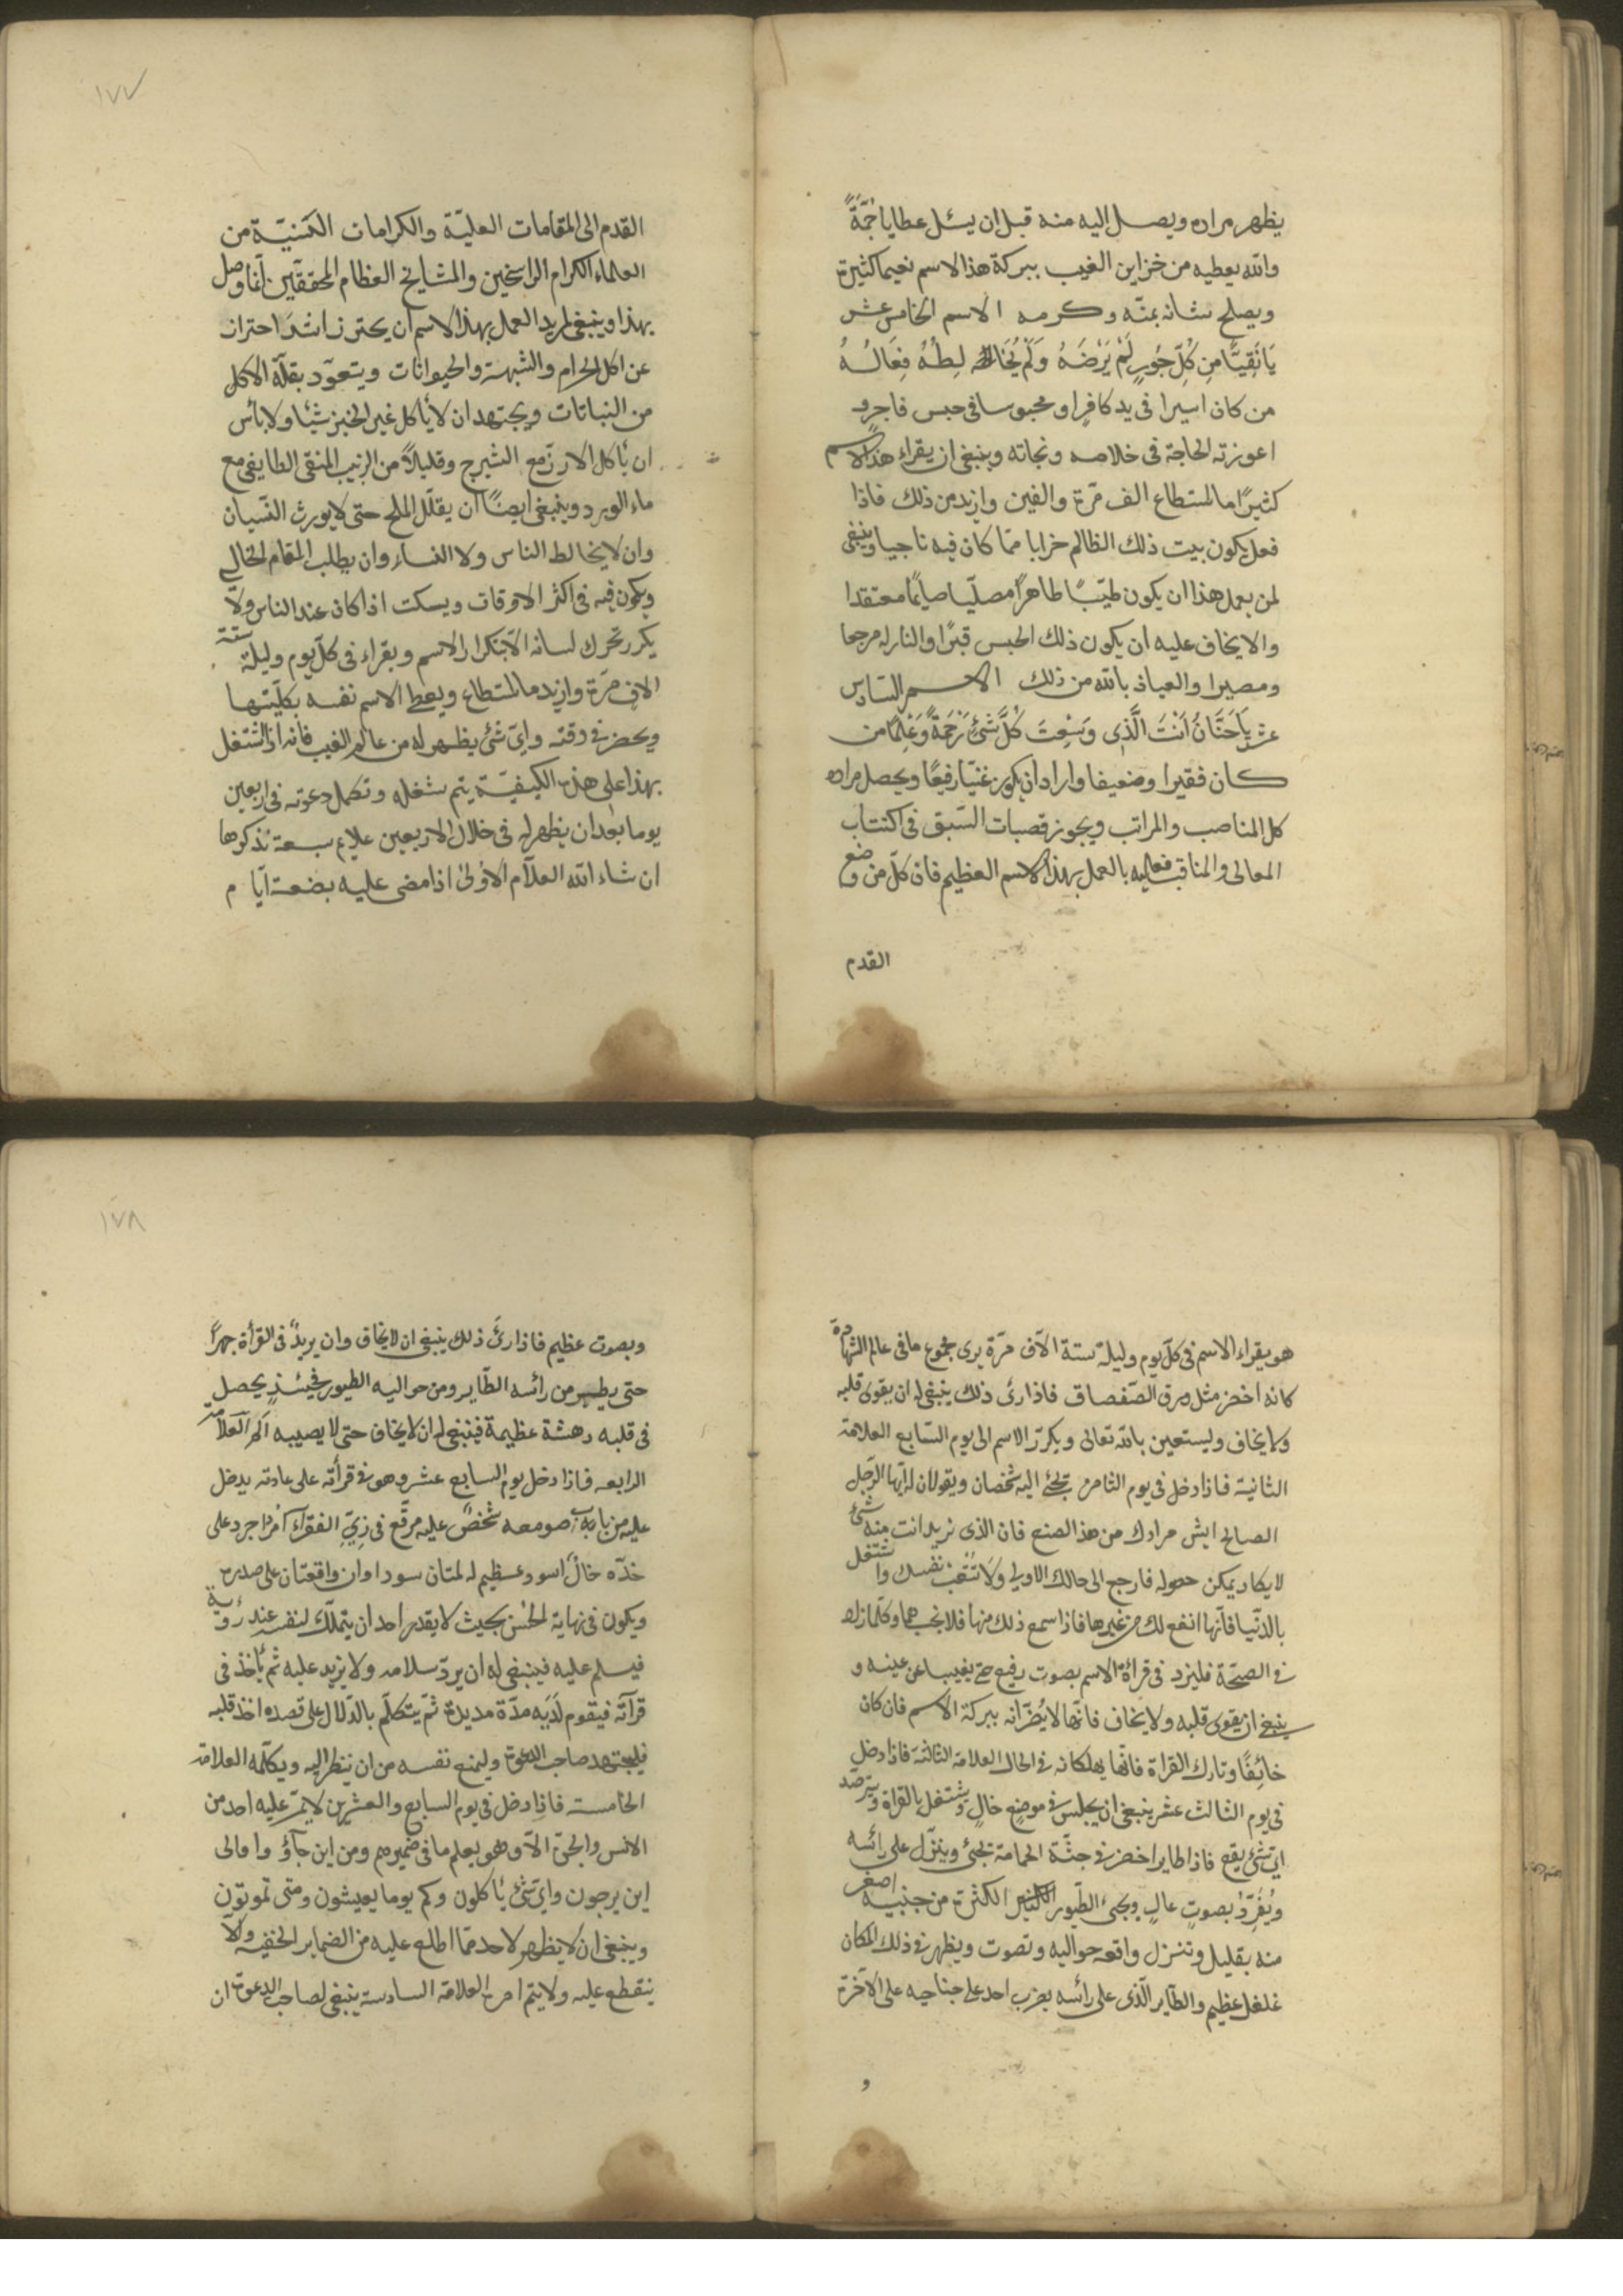 يظهر مراده ويصل اليه منه قبل ان يسئل عطايا جمّةً
والله يعطيه من خزاين الغيب ببركة هذا الاسم نعيما كثيرة
ويصلح شانه بمنّه وكرمه الاسم الخامس عشر
يَا نَقِيًّا مِن كُلِّ جُورٍ لَمْ يَرْضَهُ وَلَمْ يُخَالِطْهُ فِعَالُهُ
من كان اسيرا فى يد كافرٍ او محبوسا فى حبس فاجرٍ و
اعوزته الحاجة فى خلاصه ونجاته وينبغى ان يقراء هذا الاسم
كثيرًا ما استطاع الف مّرة والفين وازيد من ذلك فاذا
فعل يكون بيت ذلك الظالم خرابا ممّا كان فيه ناجيا وينبغى
لمن يعمل هذا ان يكون طيّبًا طاهرًا مصلّيا صايمًا معتقدا
والا يخاف عليه ان يكون ذلك الحبس قبرًا والنار له مرجعا
ومصيرا والعياذ بالله من ذلك الاسم السّادس
عشر يَاحَنَّانُ اَنْتَ الَّذِى وَسِعْتَ كُلَّ شَئٍ رَحْمَةً وَعِلْمًا من
كان فقيرا وضعيفا واراد ان يكون غنيّا رفيعًا ويحصل مراده
كل المناصب والمراتب ويجوز قصبات السّبق فى اكتساب
المعالى والمناقب فعليه بالعمل بهذا الاسم العظيم فان كلّ من وضع
القدم
١٧٧
القدم الى المقامات العليّة والكرامات السَنيّة من
العلماء الكرام الراسخين والمشايخ العظام المحققين انّما وصل
بهذا وينبغى لمريد العمل بهذا الاسم ان يحترز اشدَ احتراز
عن اكل الحرام والشبهة والحيوانات ويتعوّد بقلّة الاكل
من النباتات ويجتهد ان لا يأكل غير الخبز شيئا ولا بأس
ان يأكل الارزّ مع الشيرج وقليلاً من الزبيب المنقى الطايفى مع
ماء الورد وينبغى ايضًا ان يقلّل الملح حتى لا يورث النّسيان
وان لا يخالط الناس ولا النساء وان يطلب المقام الخالى
ويكون فيه فى اكثر الاوقات ويسكت اذا كان عند الناس ولا
يكرر تحرك لسانه الّا بتكرار الاسم ويقراء فى كلّ يوم وليلة ستة
الاف مرّة وازيد ما استطاع ويعطى الاسم نفسه بكلّيتها
ويحضر فى وقته واىّ شئ يظهر له من عالم الغيب فانه اذا اشتغل
بهذا على هذه الكيفيّة يتم شغله وتكمل دعوته فى اربعين
يوما بعد ان يظهر له فى خلال الاربعين علايم سبعة نذكرها
ان شاء الله العلاّم الاولى اذا مضى عليه بضعة ايّام
هو يقراء الاسم فى كلّ يوم وليلة ستة الآف مّرة يرى مجموع ما فى عالم الشهادة
كانه اخضر مثل ورق الصّفصاف فاذا رئ ذلك ينبغى له ان يقوى قلبه
ولا يخاف وليستعين بالله تعالى ويكرّر الاسم الى يوم السّابع العلامة
الثانية فاذا دخل فى يوم الثامن تجئ اليه شخصان ويقولان له ايّها الرّجل
الصالح ايش مرادك من هذا الصنع فان الذى تريد انت منه شئ
لا يكاد يمكن حصوله فارجع الى حالك الاولى ولَا تُتْعِبْ نفسك واشتغل
بالدنّيا فانّها انفع لك من غيرها فاذا سمع ذلك منها فلا نجبهما وكلّما زاد
فى الصيّحة فليزد فى قرأة الاسم بصوت رفيع حتى يغيبا عن عينه و
ينبغى ان يقوى قلبه ولا يخاف فانّها لا يُضّرانه ببركة الاسم فان كان
خائِفًا وتارك القراة فانّها يهلكانه فى الحال العلامة الثالثة فاذا دخل
فى يوم الثالث عشر ينبغى ان يجلس فى موضعٍ خالٍ ويشتغل بالقراة ويترصّد
اىّ شئ يقع فاذا طاير اخضر فى جثّة الحمامة تجئ وينزّل على رائسه
ويُغَرِّدُ بصوتٍ عالٍ ويجئ الطّيور الكثير الكثرة من جنبيه اصغر
منه بقليل وتنزل واقعه حواليه وتصوت ويظهر فى ذلك المكان
غلغل عظيم والطّاير الّذى على رائسه يضرب احد على جناحيه على الآخرة
و
١٧٨
وبصوت عظيم فاذا رئ ذلك ينبغى ان لا يخاف وان يريدّ فى القرأة جهرًا
حتى يطير من رائسه الطّاير ومن حواليه الطيور فحينئذٍ يحصل
فى قلبه دهشة عظيمة فينبغى له ان لا يخاف حتى لا يصيبه الم العلامة
الرابعه فاذا دخل يوم السابع عشر وهو فى قرأته على عادته يدخل
عليه من باب صومعه شخصٌ عليه مرقّع فى زىِّ الفقرآء امرد اجرد على
خدّه خالٌ اسود عظيم له لمتان سوداوان واقعتان على صدره
ويكون فى نهاية الحُسْن بحيث لا يقدر احد ان يتملّك لنفسه عند رؤية
فيسلم عليه فينبغى له ان يردّ سلامه ولا يزيد عليه ثم يأخذ فى
قرآته فيقوم لَدَيه مدّة مديدة ثمّ يتكلّم بالدّلال على قصده اخذ قلبه
فليجتهد صاحب الدعوة وليمنع نفسه من ان ينظر اليه ويكلّمه العلامة
الخامسة فاذا دخل فى يوم السابع والعشرين لا يمرّ عليه احد من
الانس والجنّ الاّ وهو يعلم ما فى ضميرهم ومن اين جآؤ وا والى
اين يرجون واىّ شئ يأكلون وكم يوما يعيشون ومتى تموتون
وينبغى ان لا يظهر لاحد ممّا اطلع عليه من الضماير الخفيه ولّا
ينقطع عليه ولا يتم امره العلامة السادسة ينبغى لصاحب الدعوة ان